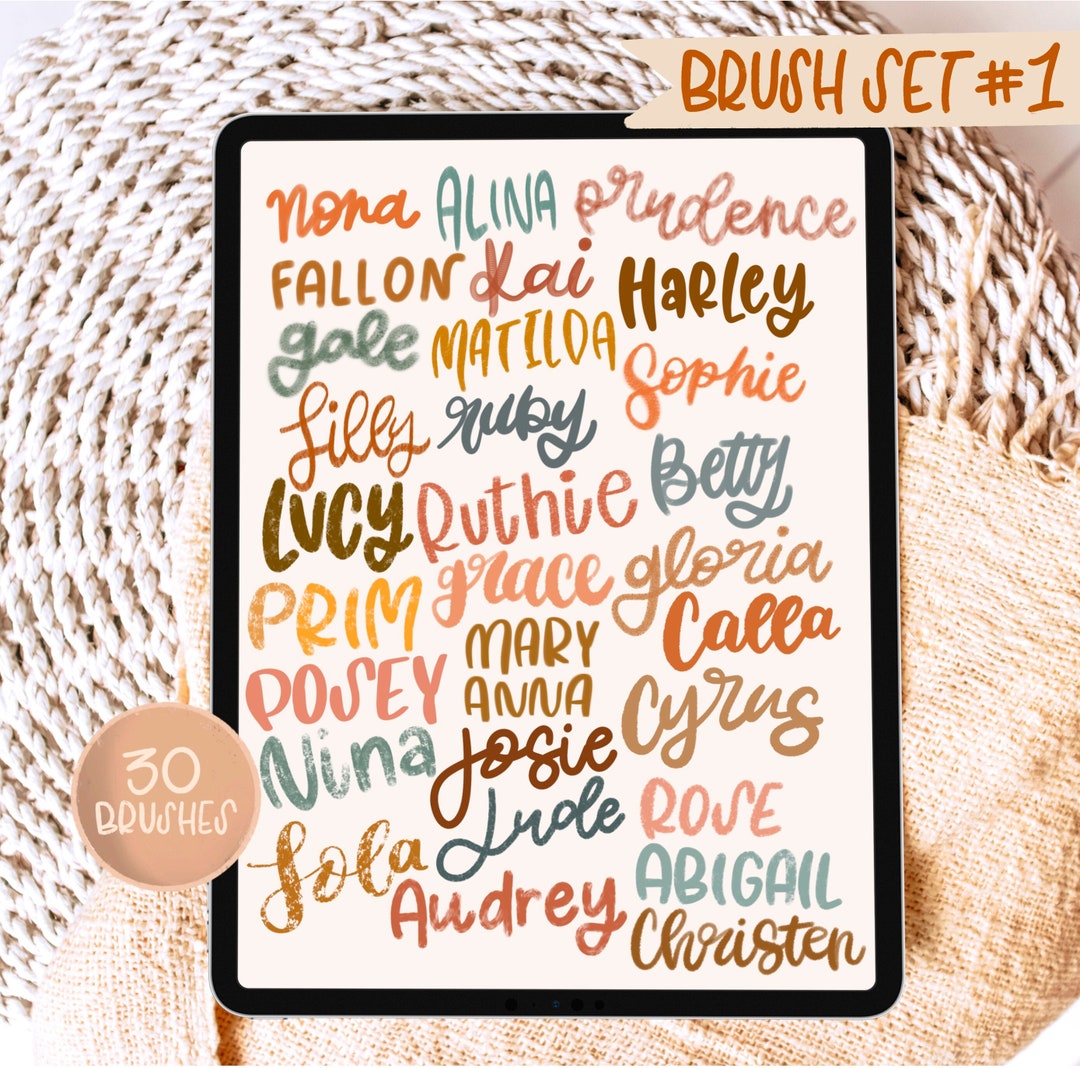 BRUSH SET #1
nona ALINA prudence
FALLON Kai Harley
gale MATILDA Sophie
Lilly ruby Betty
LUCY Ruthie gloria
PRIM grace Calla
POSEY MARY ANNA Cyrus
Nina Josie ROSE
Lola Jude ABIGAIL
Audrey Christen
30
BRUSHES